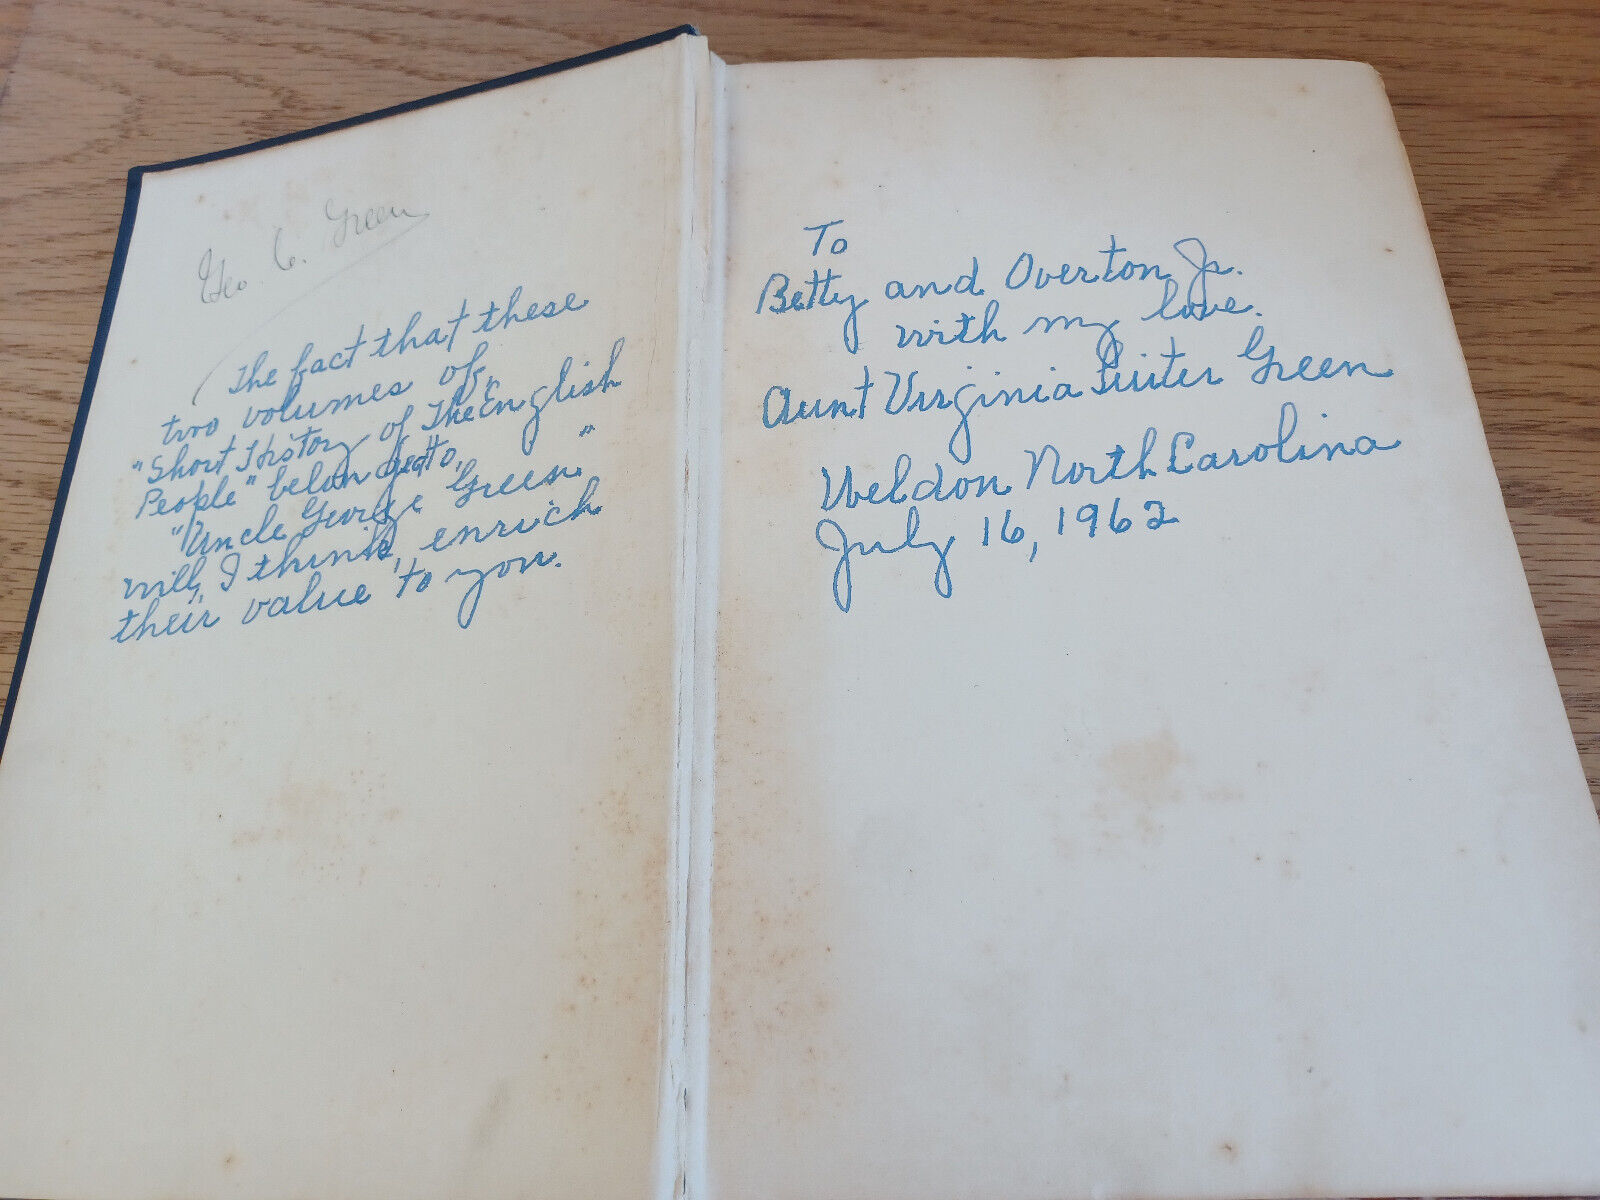 Geo. C. Green
The fact that these
two volumes of
"Short History of The English
People" belonged to
"Uncle George Green"
will, I think, enrich
their value to you.
To
Betty and Overton Jr.
with my love.
Aunt Virginia Suiter Green
Weldon North Carolina
July 16, 1962